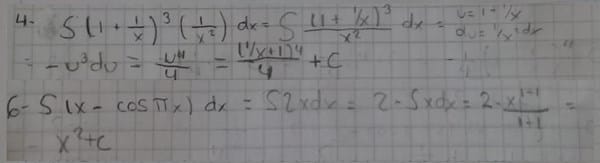 4- ∫(1 + 1/x)³ (1/x²) dx = ∫ (1 + 1/x)³/x² dx = u = 1 + 1/x
du = 1/x² dx
= -u³du = u⁴/4 = (1/x+1)⁴/4 + C
6- ∫(x - cos πx) dx = ∫2xdx = 2 - ∫xdx = 2 · x¹⁻¹/1+1 =
x² + c